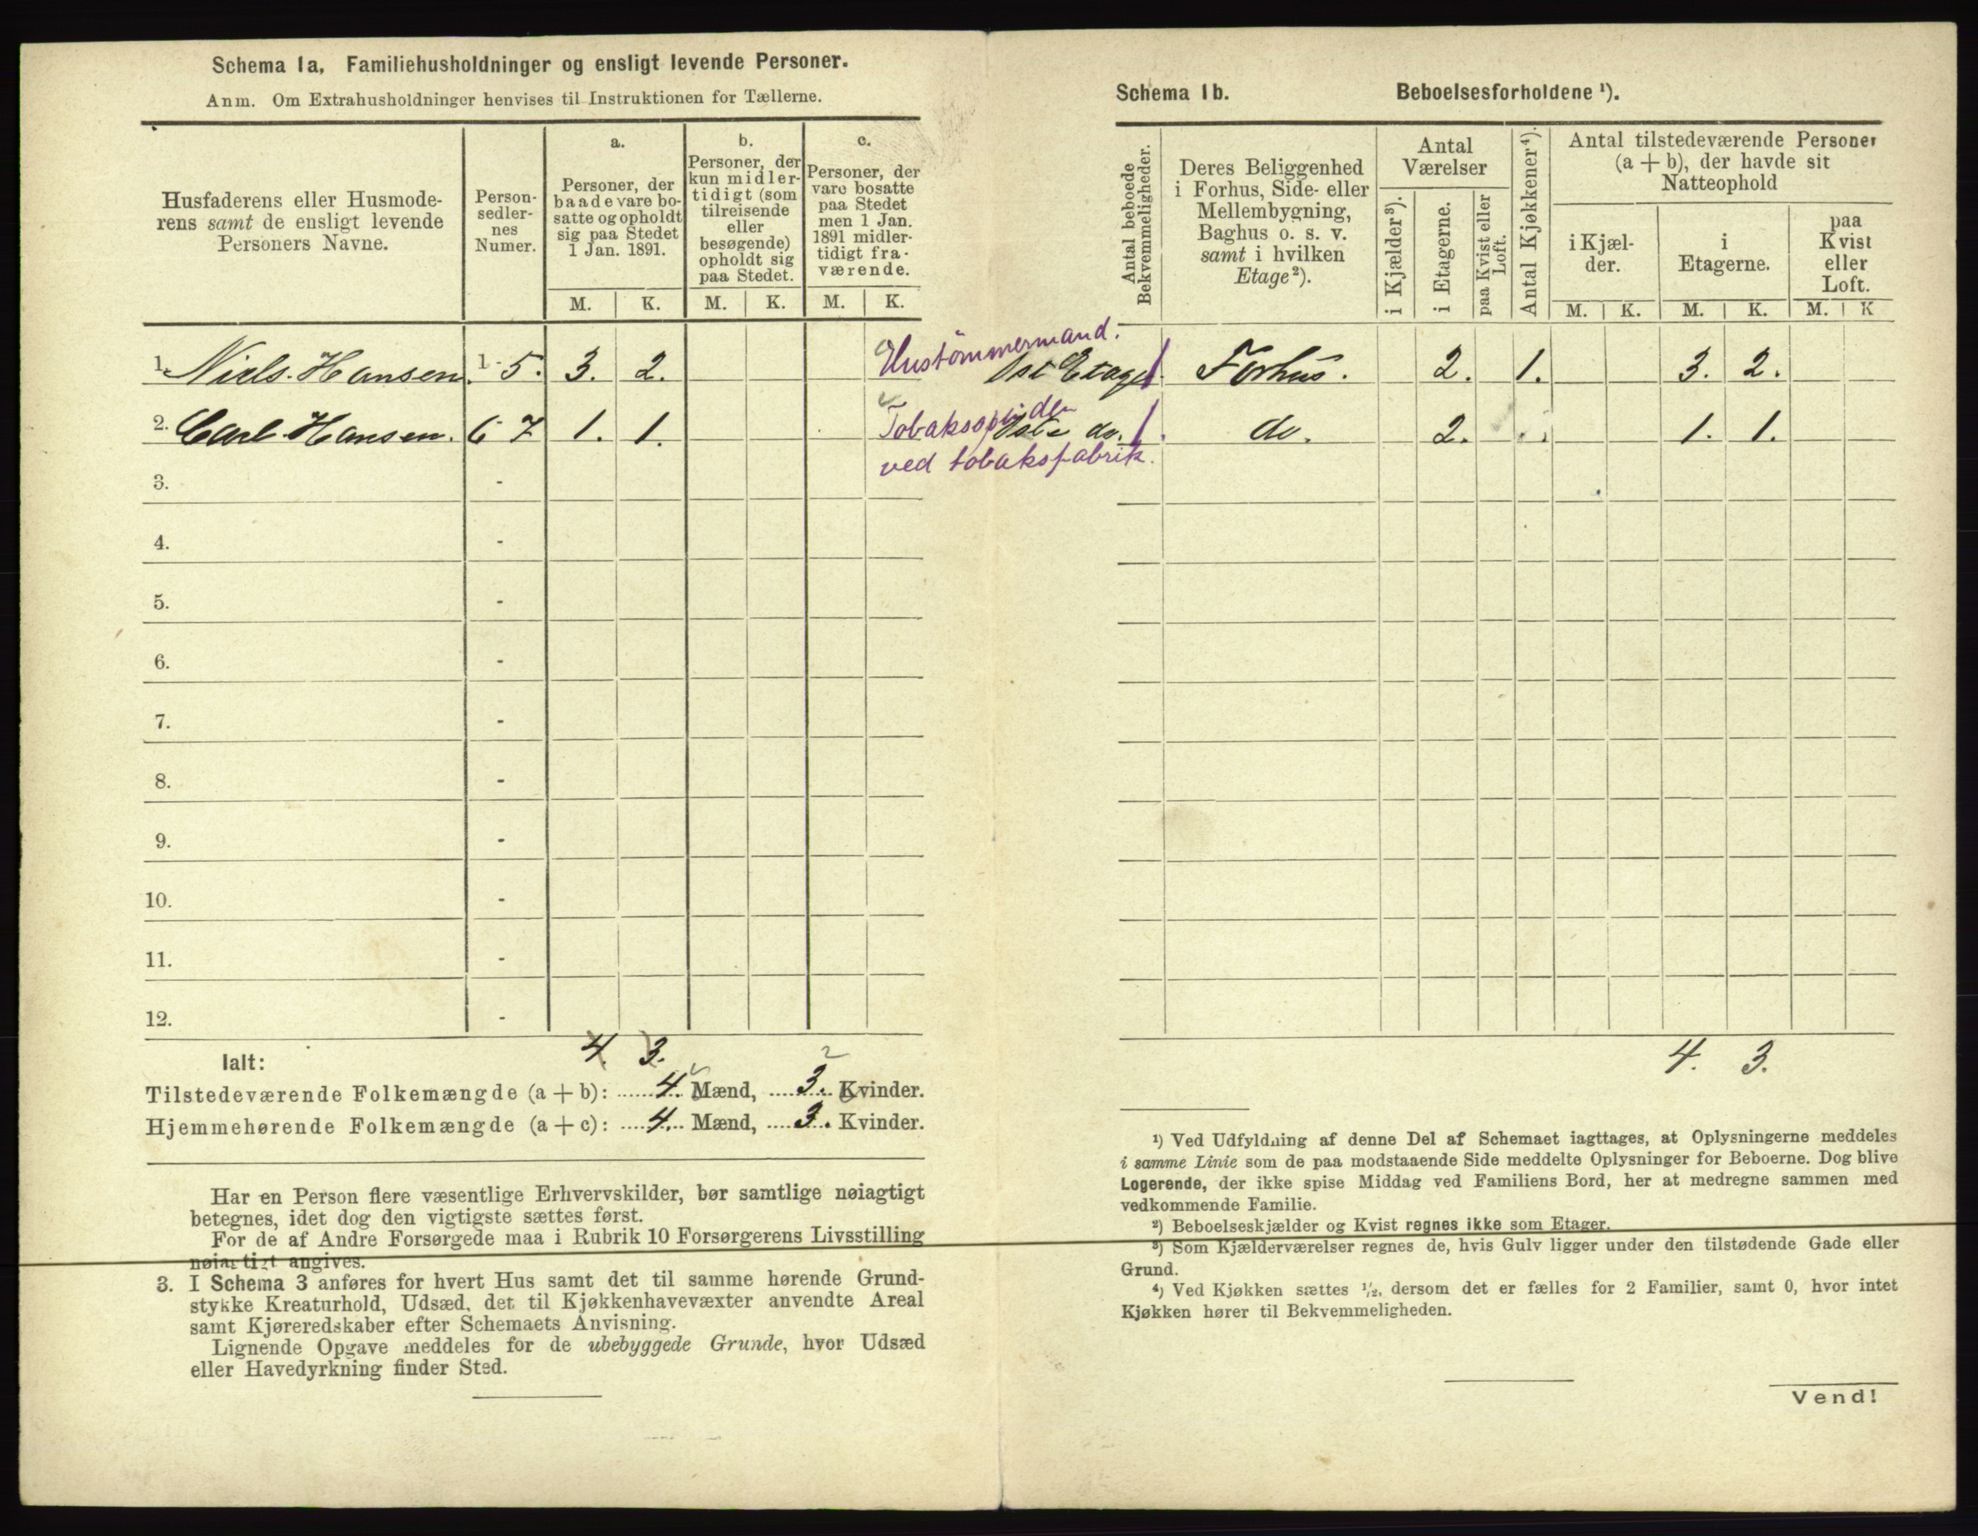 Schema 1a. Familiehusholdninger og ensligt levende Personer.
Anm. Om Extrahusholdninger henvises til Instruktionen for Tællerne.
Husfaderens eller Husmode-
rens samt de ensligt levende
Personers Navne.
Person-
sedler-
nes
Numer.
a.
Personer, der
baade vare bo-
satte og opholdt
sig paa Stedet
1 Jan. 1891.
b.
Personer, der
kun midler-
tidigt (som
tilreisende
eller
besøgende)
opholdt sig
paa Stedet.
c.
Personer, der
vare bosatte
paa Stedet
men 1 Jan.
1891 midler-
tidigt fra-
værende.
M. K. M. K. M. K.
1. Niels Hansen. 1-5. 3. 2. Hustömmermand. 1st Etage.
2. Carl Hansen. 6-7 1. 1. Tobakspinder 1ste do.
ved tobaksfabrik.
3. -
4. -
5. -
6. -
7. -
8. -
9. -
10. -
11. -
12. -
4. 3.
Ialt:
Tilstedeværende Folkemængde (a + b): 4. Mænd, 3. Kvinder.
Hjemmehørende Folkemængde (a + c): 4. Mænd, 3. Kvinder.
Har en Person flere væsentlige Erhvervskilder, bør samtlige nøiagtigt
betegnes, idet dog den vigtigste sættes først.
For de af Andre Forsørgede maa i Rubrik 10 Forsørgerens Livsstilling
nøiagtigt angives.
3. I Schema 3 anføres for hvert Hus samt det til samme hørende Grund-
stykke Kreaturhold, Udsæd, det til Kjøkkenhavevæxter anvendte Areal
samt Kjøreredskaber efter Schemaets Anvisning.
Lignende Opgave meddeles for de ubebyggede Grunde, hvor Udsæd
eller Havedyrkning finder Sted.
Schema 1b. Beboelsesforholdene ¹).
Antal beboede
Bekvemmeligheder.
Deres Beliggenhed
i Forhus, Side- eller
Mellembygning,
Baghus o. s. v.
samt i hvilken
Etage²).
Antal
Værelser
i Kjælder³).
i Etagerne.
paa Kvist eller
Loft.
Antal Kjøkkener⁴).
Antal tilstedeværende Personer
(a + b), der havde sit
Natteophold
i Kjæl-
der.
i
Etagerne.
paa
Kvist
eller
Loft.
M. K. M. K. M. K
1 Forhus. 2. 1. 3. 2.
1. do. 2. 1. 1.
4. 3.
¹) Ved Udfyldning af denne Del af Schemaet iagttages, at Oplysningerne meddeles
i samme Linie som de paa modstaaende Side meddelte Oplysninger for Beboerne. Dog blive
Logerende, der ikke spise Middag ved Familiens Bord, her at medregne sammen med
vedkommende Familie.
²) Beboelseskjælder og Kvist regnes ikke som Etager.
³) Som Kjælderværelser regnes de, hvis Gulv ligger under den tilstødende Gade eller
Grund.
⁴) Ved Kjøkken sættes ½, dersom det er fælles for 2 Familier, samt 0, hvor intet
Kjøkken hører til Bekvemmeligheden.
Vend!